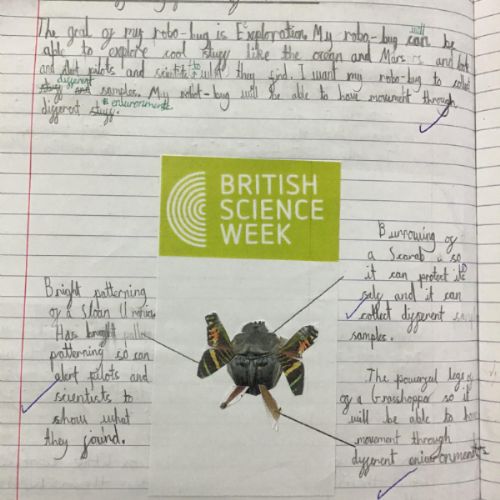 The goal of my robo-bug is Exploration. My robo-bug will can be
able to explore cool stuff like the ocean and Mars
and alert pilots and scientists to what they find. I want my robo-bug to collect
different samples. My robot-bug will be able to have movement through
different stuff. environments
BRITISH
SCIENCE
WEEK
Burrowing of
a Scarab so
it can protect its
self and it can
collect different
samples.
Bright patterning
of a Sloan
Has bright
patterning so can
alert pilots and
scientists to
show what
they found.
The powerful legs
of a Grasshopper so it
will be able to
movement through
different environments